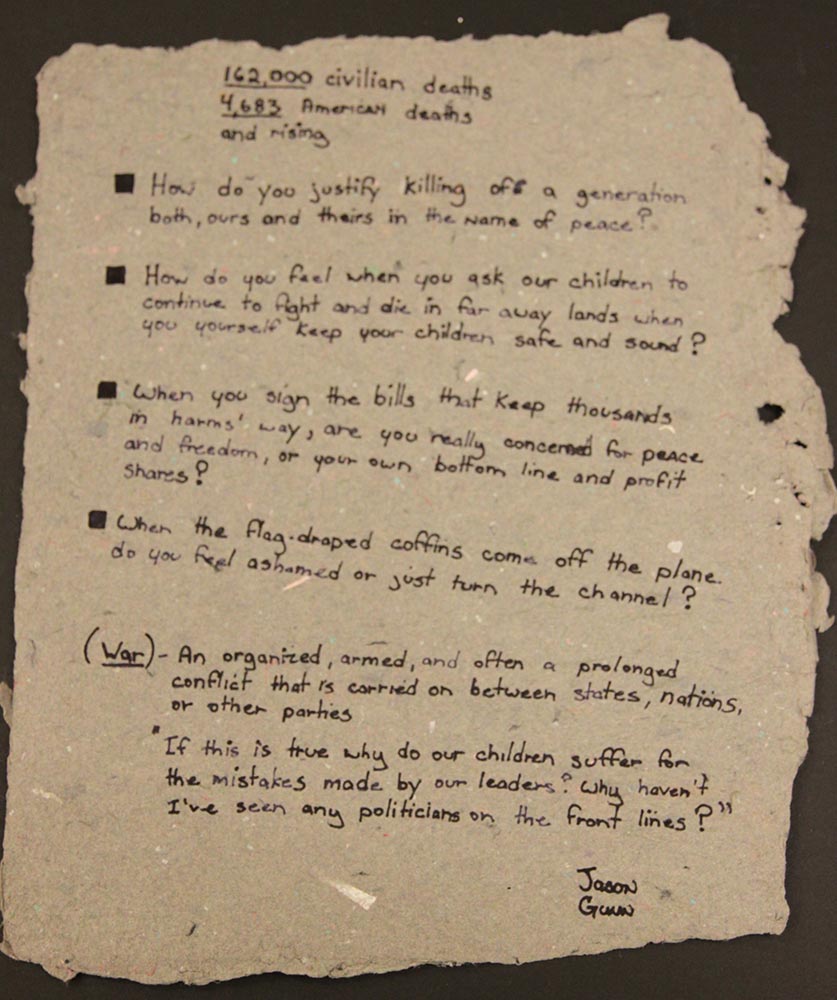 162,000 civilian deaths
4,683 American deaths
and rising
■ How do you justify killing off a generation
both, ours and theirs in the name of peace?
■ How do you feel when you ask our children to
continue to fight and die in far away lands when
you yourself keep your children safe and sound?
■ When you sign the bills that keep thousands
in harms' way, are you really concerned for peace
and freedom, or your own bottom line and profit
shares?
■ When the flag-draped coffins come off the plane.
do you feel ashamed or just turn the channel?
(War) - An organized, armed, and often a prolonged
conflict that is carried on between states, nations,
or other parties
"If this is true why do our children suffer for
the mistakes made by our leaders? Why haven't
I've seen any politicians on the front lines?"
Jason
Gunn